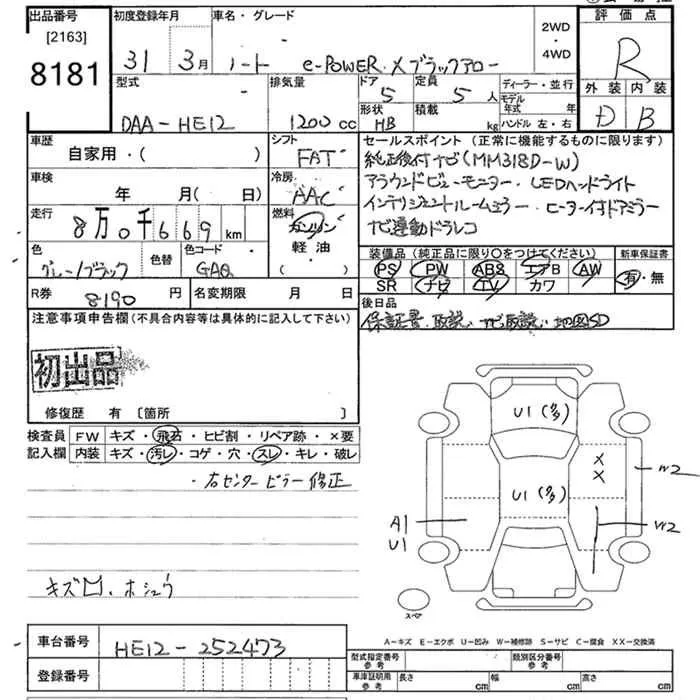 出品番号
[2163]
8181
初度登録年月
31 3月
車名・グレード
ノート e-POWER.Xブラックアロー
2WD
・
4WD
評価点
R
外装 内装
D B
型式
DAA-HE12
排気量
1200cc
ドア
5
定員
5人
形状
HB
積載
kg
ディーラー・並行
モデル年式 年
ハンドル 左・右
車歴
自家用・( )
シフト
FAT
車検
年 月(日)
冷房
AAC
走行
8万0千669km
燃料
ガソリン
軽油・
( )
色
グレー/ブラック
色替
色コード
GAQ
R券
8190円
名変期限 月 日
セールスポイント(正常に機能するものに限ります)
純正後付ナビ(MM318D-W)
アラウンドビューモニター・LEDヘッドライト
インテリジェントルームミラー・ヒーター付ドアミラー
ナビ連動ドラレコ
装備品(純正品に限り○をつけてください)
新車保証書
PS PW ABS エアB AW
SR ナビ TV カワ
有・無
後日品
保証書.取説.ナビ取説.地図SD
注意事項申告欄(不具合内容等は具体的に記入して下さい)
初出品
修復歴 有〔箇所 〕
検査員
記入欄
FW キズ・飛石・ヒビ割・リペア跡・×要
内装 キズ・汚レ・コゲ・穴・スレ・キレ・破レ
・右センターピラー修正
キズ凹.ホシュウ
U1(多)
U1(多)
X
X
W2
W2
A1
U1
スペア
A−キズ E−エクボ U−凹み W−補修跡 S−サビ C−腐食 XX−交換済
車台番号
HE12-252473
登録番号
型式指定番号
参考
類別区分番号
参考
車庫証明用
参考
長さ cm
幅 cm
高さ cm